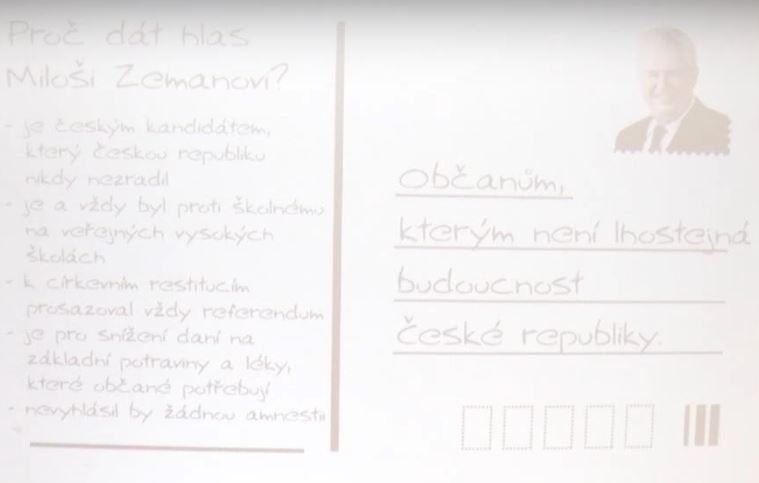 Proč dát hlas
Miloši Zemanovi?
- je českým kandidátem,
který českou republiku
nikdy nezradil
- je a vždy byl proti školnému
na veřejných vysokých
školách
- k církevním restitucím
prosazoval vždy referendum
- je pro snížení daní na
základní potraviny a léky,
které občané potřebují
- nevyhlásil by žádnou amnestii
Občanům,
kterým není lhostejná
budoucnost
české republiky.